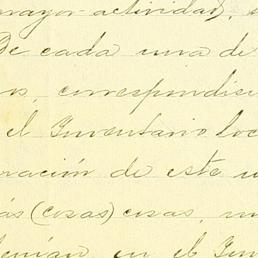 mayor actividad),
De cada una de
os, correspondie
el Inventario loc
ración de este
ás (cosas) cosas,
lenían, en el Inv